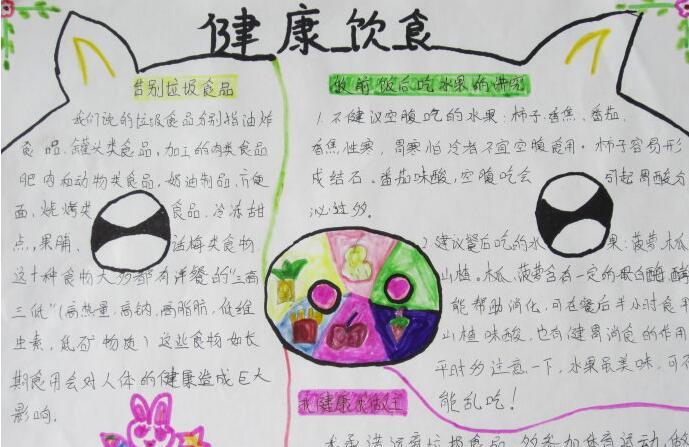 健康饮食
告别垃圾食品
我们说的垃圾食品分别指油炸
食品、罐头类食品,加工的肉类食品
肥肉和动物类食品,奶油制品、方便
面,烧烤类食品、冷冻甜
点,果脯、话梅类食物
这十种食物大多都有洋餐的"三高
三低"(高热量,高钠,高脂肪,低维
生素,低矿物质)这些食物如长
期食用会对人体的健康造成巨大
影响。
饭前饭后吃水果的讲究
1.不建议空腹吃的水果:柿子.香焦、番茄,
香焦性寒,胃寒怕冷者不宜空腹食用。柿子容易形
成结石。番茄味酸,空腹吃会引起胃酸分
泌过多。
2.建议餐后吃的水果:菠萝木瓜
山楂。木瓜、菠萝含有一定的蛋白酶
能帮助消化,可在餐后半小时食用
山楂味酸,也有健胃消食的作用
平时多注意一下,水果虽美味,可不
能乱吃!
我健康我做主
垃圾食品